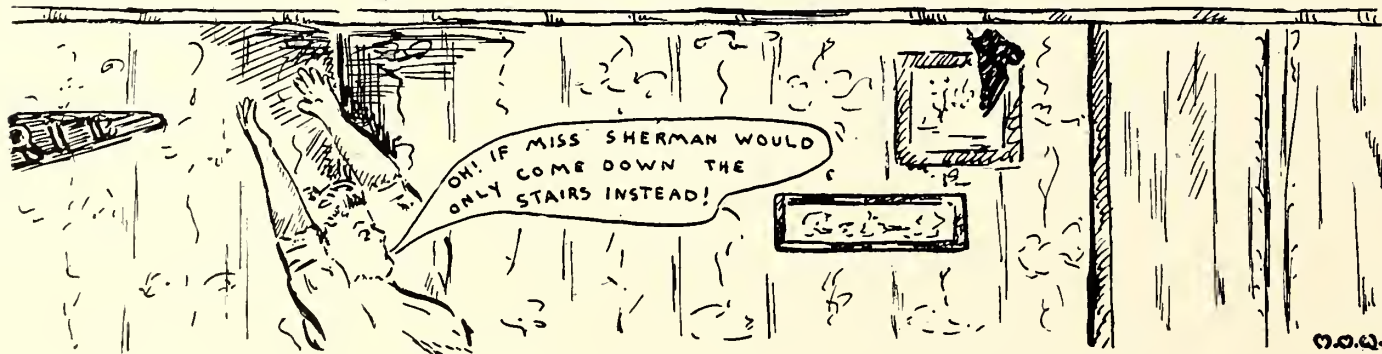 OH! IF MISS SHERMAN WOULD
ONLY COME DOWN THE
STAIRS INSTEAD!
M.O.W.